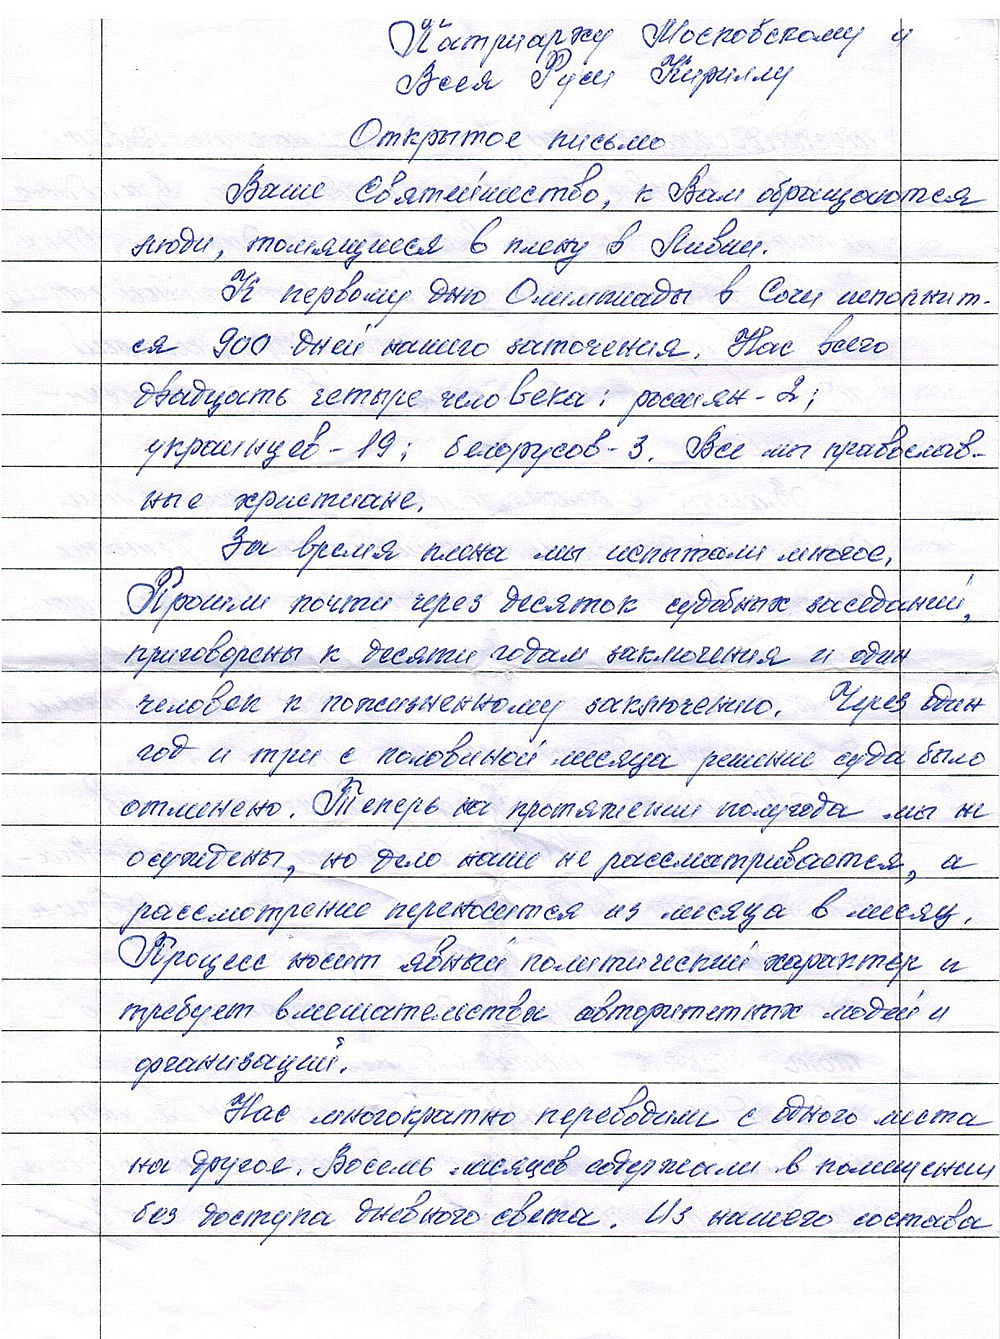 Патриарху Московскому и
Всея Руси Кириллу
Открытое письмо
Ваше Святейшество, к Вам обращаются
люди, томящиеся в плену в Ливии.
К первому дню Олимпиады в Сочи исполнит-
ся 900 дней нашего заточения. Нас всего
двадцать четыре человека: россиян - 2;
украинцев - 19; белорусов - 3. Все мы православ-
ные христиане.
За время плена мы испытали многое.
Прошли почти через десяток судебных заседаний,
приговорены к десяти годам заключения и один
человек к пожизненному заключению. Через один
год и три с половиной месяца решение суда было
отменено. Теперь на протяжении полугода мы не
осуждены, но дело наше не рассматривается, а
рассмотрение переносится из месяца в месяц.
Процесс носит явный политический характер и
требует вмешательства авторитетных людей и
организаций.
Нас многократно переводили с одного места
на другое. Восемь месяцев содержали в помещении
без доступа дневного света. Из нашего состава